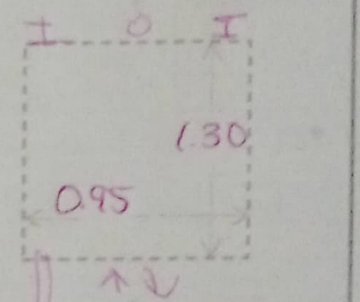 I O I
1.30
0.95